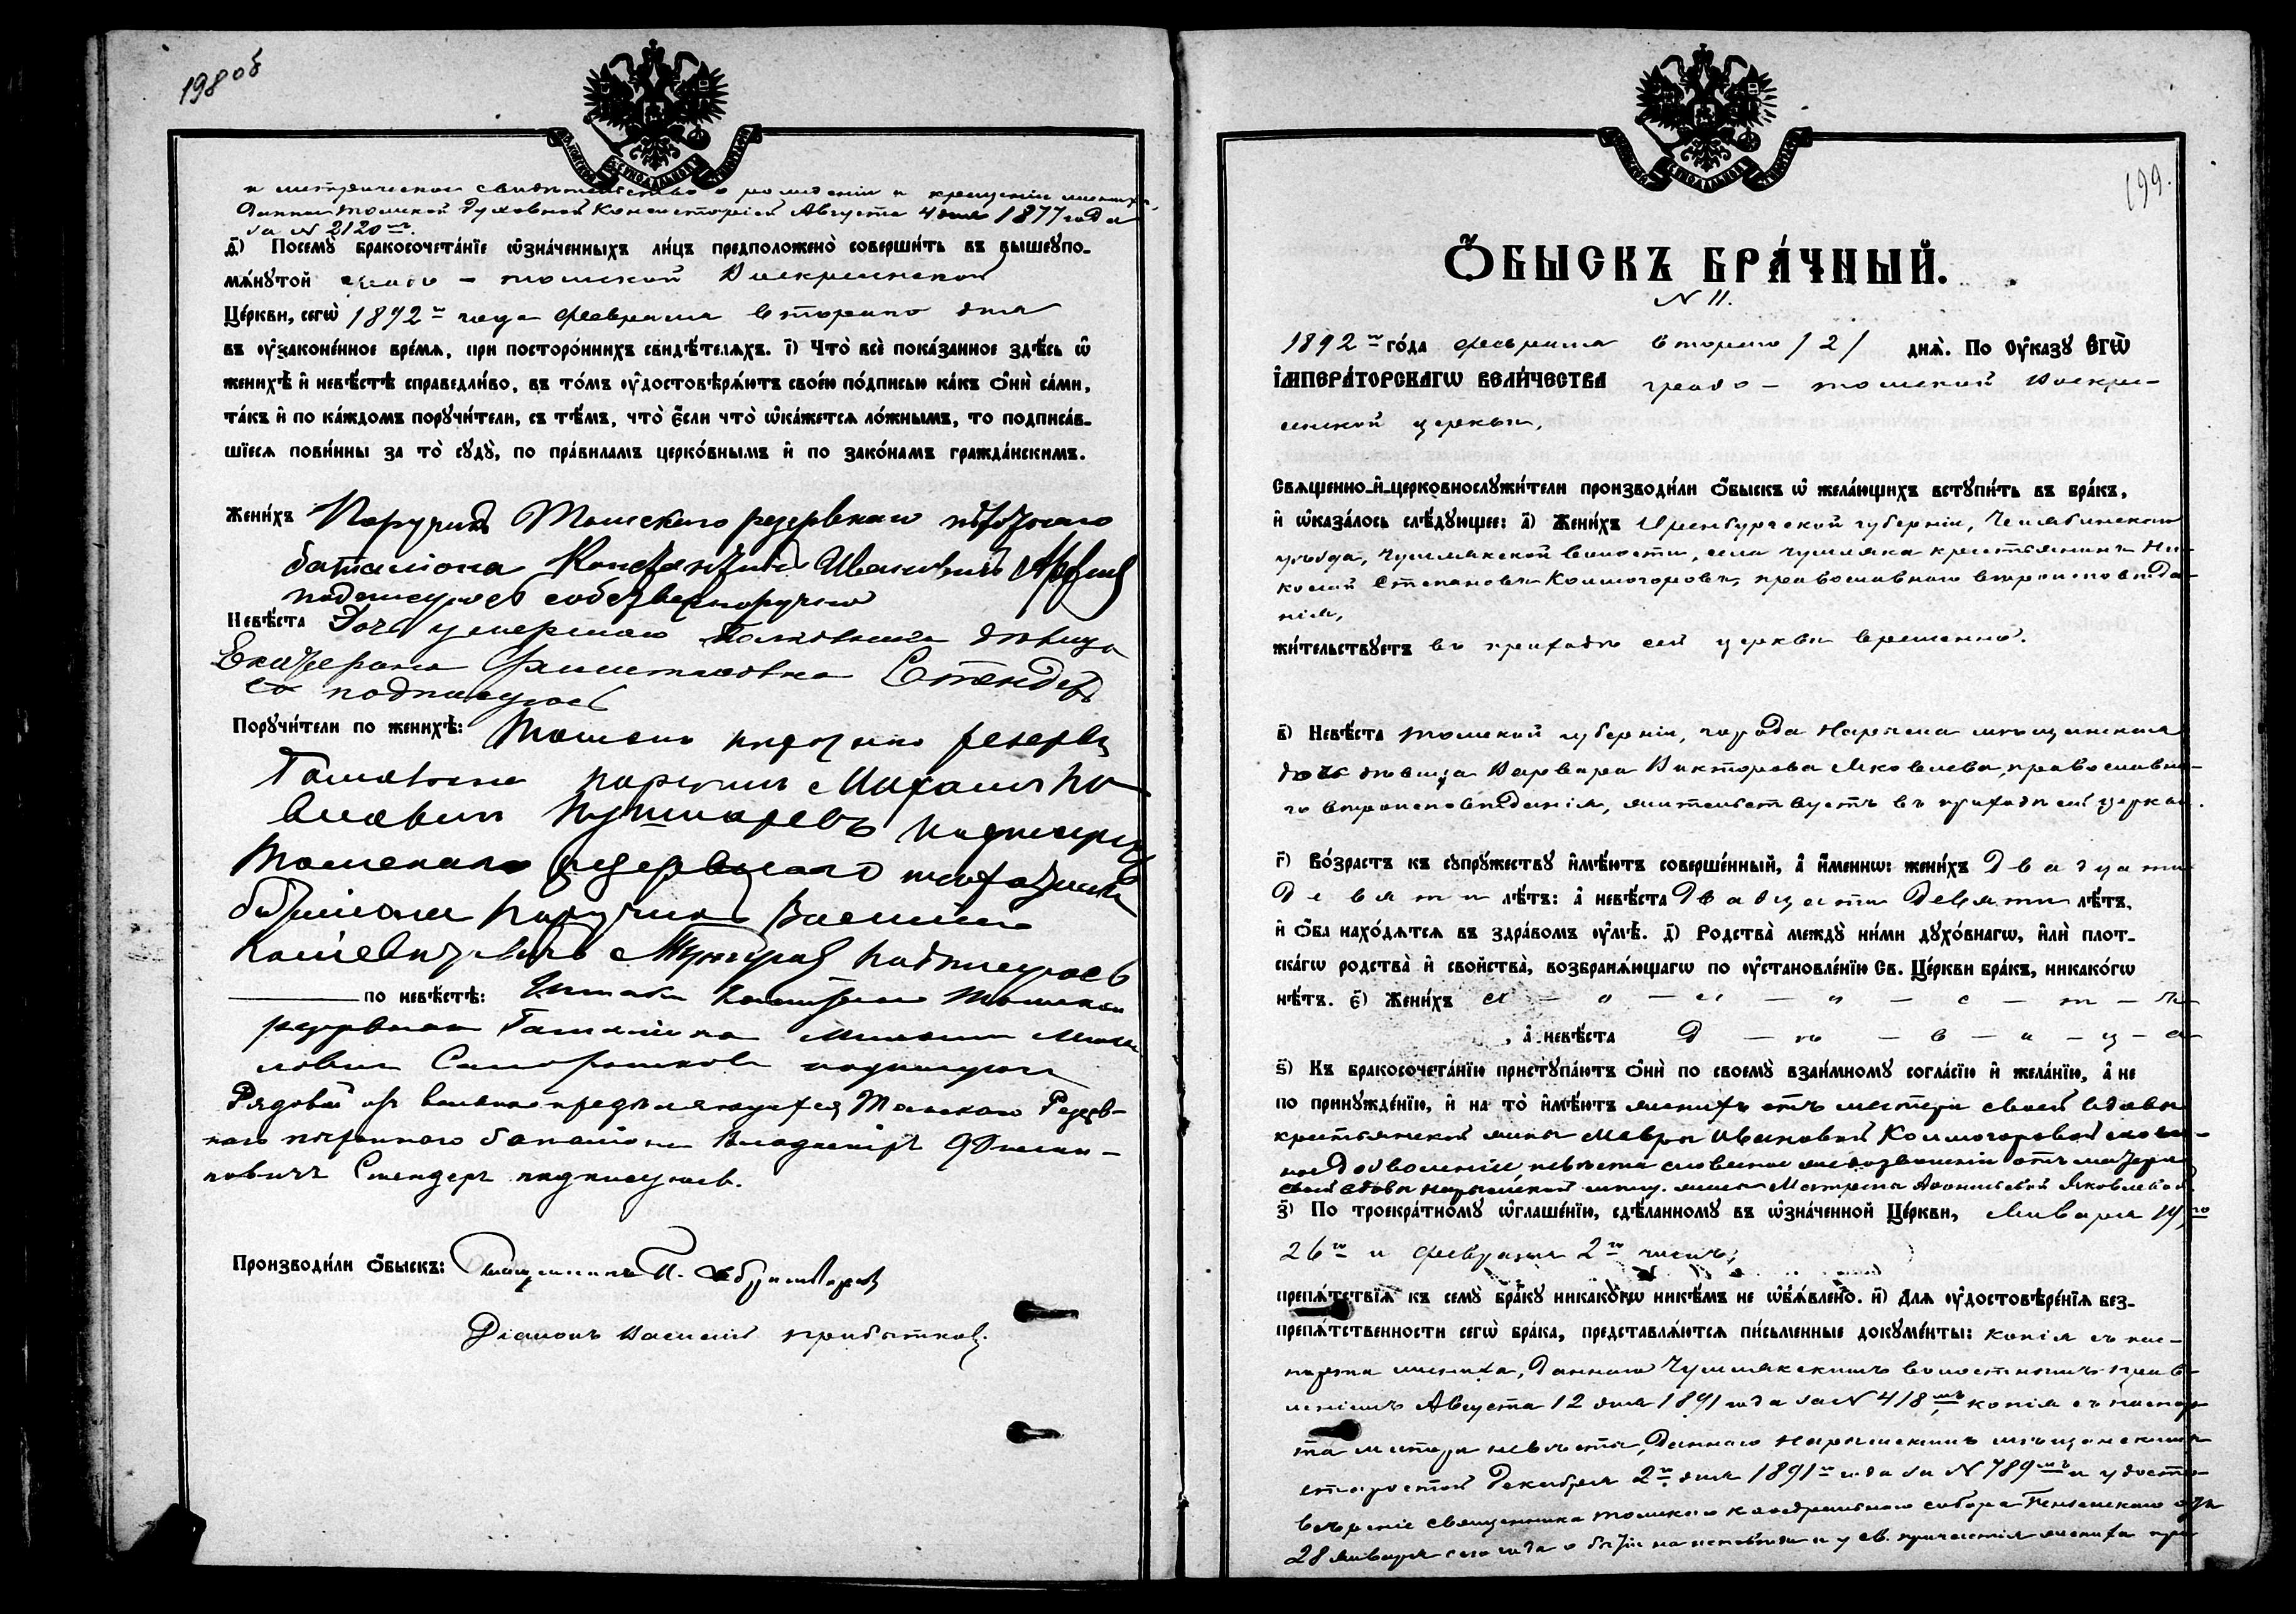 198 об
и метрическое свидѣтельство о рожденіи и крещеніи
данное Томской Духовной Консисторіей Августа 4 дня 1877 года
за N 2120 мъ.
д҃) Посемꙋ̀ бракосочета́нїе ѡ҆зна́ченныхъ ли́цъ предположено̀ соверши́ть въ вышеꙋпо-
мѧ́нꙋтой градо - Томской Воскресенской
Це́ркви, сегѡ̀ 1892 го года февраля второго дня
въ ᲂу҆законе́нное вре́мѧ, при посторо́ннихъ свидѣ́телѧхъ. і҃) Что̀ всѐ пока́занное здѣ́сь ѡ҆
женихѣ̀ и҆ невѣ́стѣ справедли́во, въ то́мъ ᲂу҆достовѣрѧ́ютъ свое́ю по́дписью ка́къ ѻ҆нѝ са́ми,
та́къ и҆ по ка́ждомъ порꙋчи́тели, съ тѣ́мъ, что̀ є҆́сли что̀ ѡ҆ка́жетсѧ ло́жнымъ, то подписа́в-
шїесѧ пови́нны за то̀ сꙋдꙋ̀, по пра́виламъ церко́внымъ и҆ по зако́намъ гражда́нскимъ.
Жени́хъ Поручикъ Томскаго резервнаго пѣхотнаго
баталіона Константинъ Ивановичъ
подписуюсь собственноручно
Невѣ́ста Дочь умершаго Полковника дѣвица
Екатерина Стендеръ
подписуюсь
Порꙋчи́тели по женихѣ̀: Томскаго пѣхотнаго резерв
баталіона поручикъ Михаилъ Па
вловичъ Пушкаревъ подписуюсь
Томскаго резервнаго пѣхотнаго
баталіона поручикъ Василій
подписуюсь
по невѣ́стѣ: Штабсъ Капитанъ Томскаго
резервнаго баталіона Михаилъ Михай
ловичъ подписуюсь
Рядовой изъ вольноопредѣляющихся Томскаго Резерв-
наго пѣхотнаго баталіона Владиміръ
Стендеръ подписуюсь.
Производи́ли ѻ҆́быскъ: Священникъ П.
Діаконъ Василій Прибытковъ.
199.
Ѻ҆́быскъ бра́чный.
N 11.
1892 го го́да февраля второго /2/ днѧ̀. По ᲂу҆казꙋ Є҆гѡ̀
І҆мпера́торскагѡ вели́чества градо - Томской Воскре-
сенской церкви,
Свѧще́нно-и҆-церковнослꙋжи́тели производи́ли ѻ҆́быскъ ѡ҆ жела́ющихъ встꙋпи́ть въ бра́къ,
и҆ ѡ҆каза́лось слѣ́дꙋющее: а҃) Жени́хъ Оренбургской губерніи, Челябинскаго
уѣзда, Чумлякской волости, села Чумляка крестьянинъ Ни-
колай Степановъ Колмогоровъ, православного вѣроисповѣда-
нія,
жи́тельствꙋетъ въ приходѣ сей церкви временно.
в҃) Невѣ́ста Томской губерніи, города Нарыма мѣщанская
дочь дѣвица Варвара Викторова Яковлева, православна-
го вѣроисповѣданія, жительствуетъ въ приходѣ сей церкви.
г҃) Во́зрастъ къ сꙋпрꙋ́жествꙋ и҆мѣ́ютъ соверше́нный, а҆ и҆́меннѡ: жени́хъ Двадцати
Девяти лѣ́тъ: а҆ невѣ́ста Двадцати Девяти лѣ́тъ,
и҆ ѻ҆́ба нахо́дѧтсѧ въ здра́вомъ ᲂу҆мѣ̀. д҃) Родства̀ междꙋ̀ ни́ми дꙋхо́внагѡ, и҆лѝ плот-
ска́гѡ родства̀ и҆ свойства̀, возбранѧ́ющагѡ по ᲂу҆становле́нїю Св. Це́ркви бра́къ, никако́гѡ
нѣ́тъ. є҃) Жени́хъ х - о - л - о - с - т - ъ
, а҆ невѣ́ста д - ѣ - в - и - ц - а
ѕ҃) Къ бракосочета́нїю пристꙋпа́ютъ ѻ҆нѝ по своемꙋ̀ взаи́мномꙋ согла́сїю и҆ жела́нїю, а҆ не
по принꙋжде́нїю, и҆ на то̀ и҆мѣ́ютъ женихъ отъ матери своей вдовы
крестьянской жены Мавры Ивановой Колмогоровой словес-
ное дозволеніе, невѣста словесное дозволеніе отъ матери
своей вдовы нарымской мѣщ. жены Матрены Яковлевой.
з҃) По троекра́тномꙋ ѡ҆глаше́нїю, сдѣ́ланномꙋ въ ѡ҆зна́ченной Це́ркви, Января 19 го
26 го и февраля 2 го чиселъ,
препѧ́тствїѧ къ семꙋ̀ бра́кꙋ никако́гѡ никѣ́мъ не ѡ҆б̾ѧ́влено. и҃) Длѧ ᲂу҆достовѣре́нїѧ без-
препѧ́тственности сегѡ̀ бра́ка, представлѧ́ютсѧ пи́сьменные докꙋме́нты: копія съ пас-
порта жениха, даннаго Чумлякскимъ волостнымъ прав-
леніемъ Августа 12 дня 1891 года за N 418 мъ, копія съ паспор-
та матери невѣсты, даннаго Нарымскимъ мѣщанскимъ
старостой Декабря 2 го дня 1891 го года за N 789 мъ и удосто-
вѣреніе священника Томскаго каѳедральнаго собора отъ
28 января сего года о бытіи на исповѣди и у св. причастія жениха